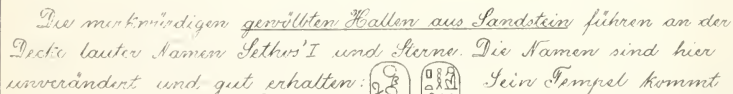 Die merkwürdigen gewölbten Hallen aus Sandstein führen an der
Decke lauter Namen Sethos'I und Sterne. Die Namen sind hier
unverändert und gut erhalten: Sein Tempel kommt